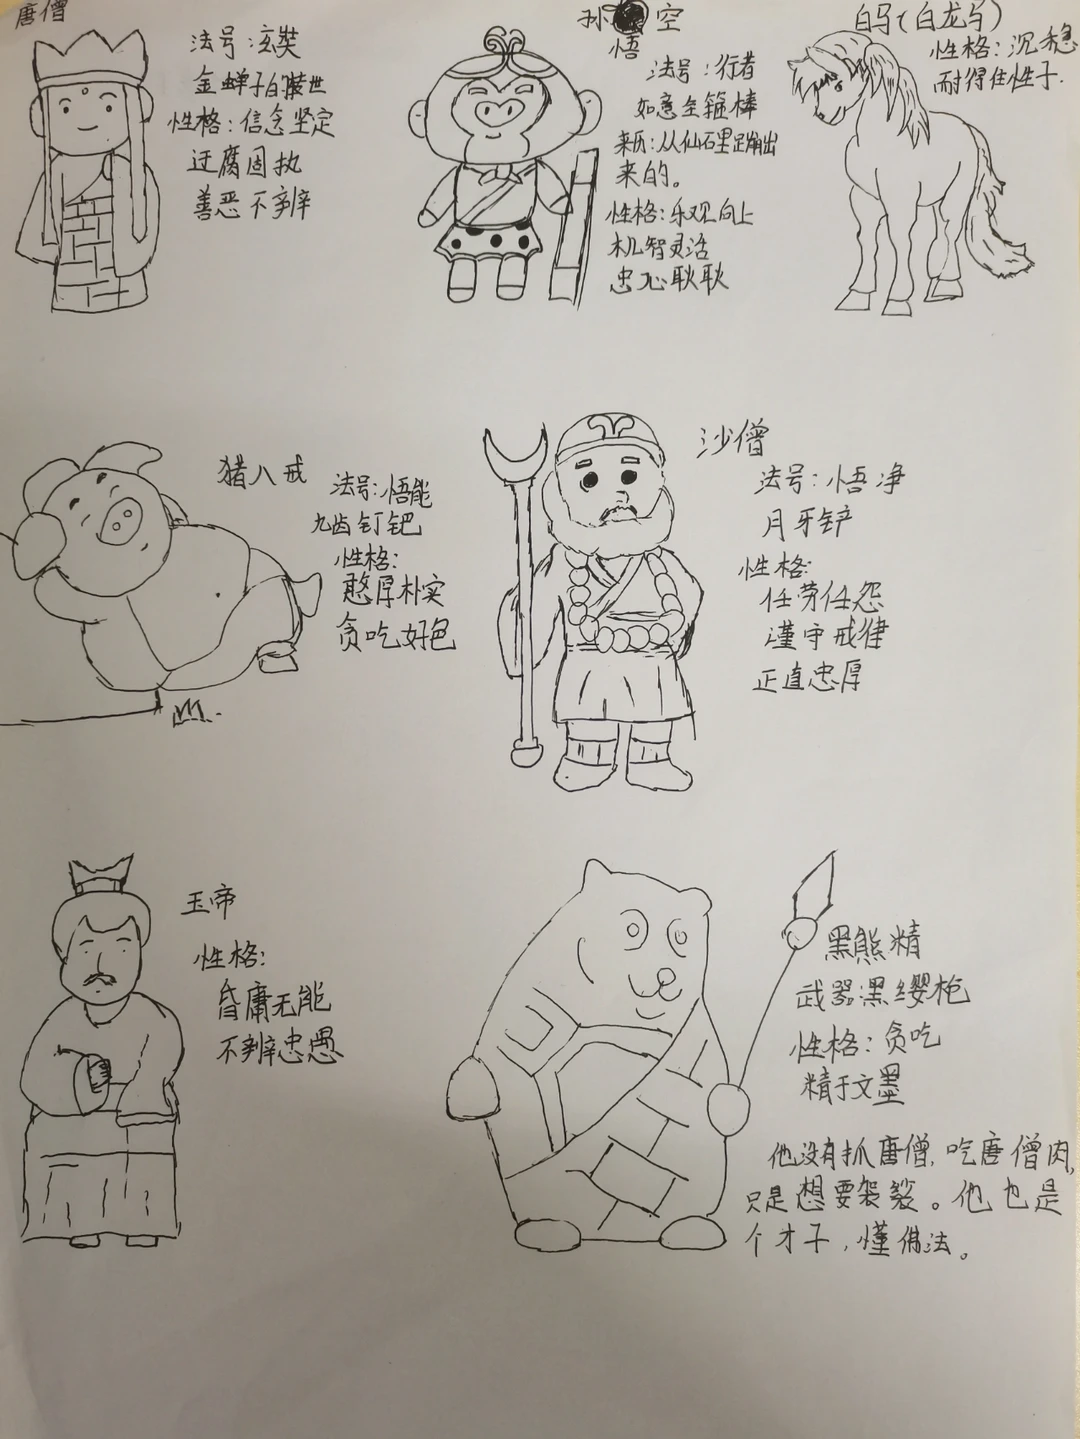 唐僧
法号:玄奘
金蝉子的转世
性格:信念坚定
迂腐固执
善恶不辨
孙空
悟
法号:行者
如意金箍棒
来历:从仙石里蹦出
来的。
性格:乐观向上
机智灵活
忠心耿耿
白马(白龙马)
性格:沉稳
耐得住性子.
猪八戒
法号:悟能
九齿钉钯
性格:
憨厚朴实
贪吃好色
沙僧
法号:悟净
月牙铲
性格:
任劳任怨
谨守戒律
正直忠厚
玉帝
性格:
昏庸无能
不辨忠愚
黑熊精
武器:黑缨枪
性格:贪吃
精于文墨
他没有抓唐僧,吃唐僧肉,
只是想要袈裟。他也是
个才子,懂佛法。